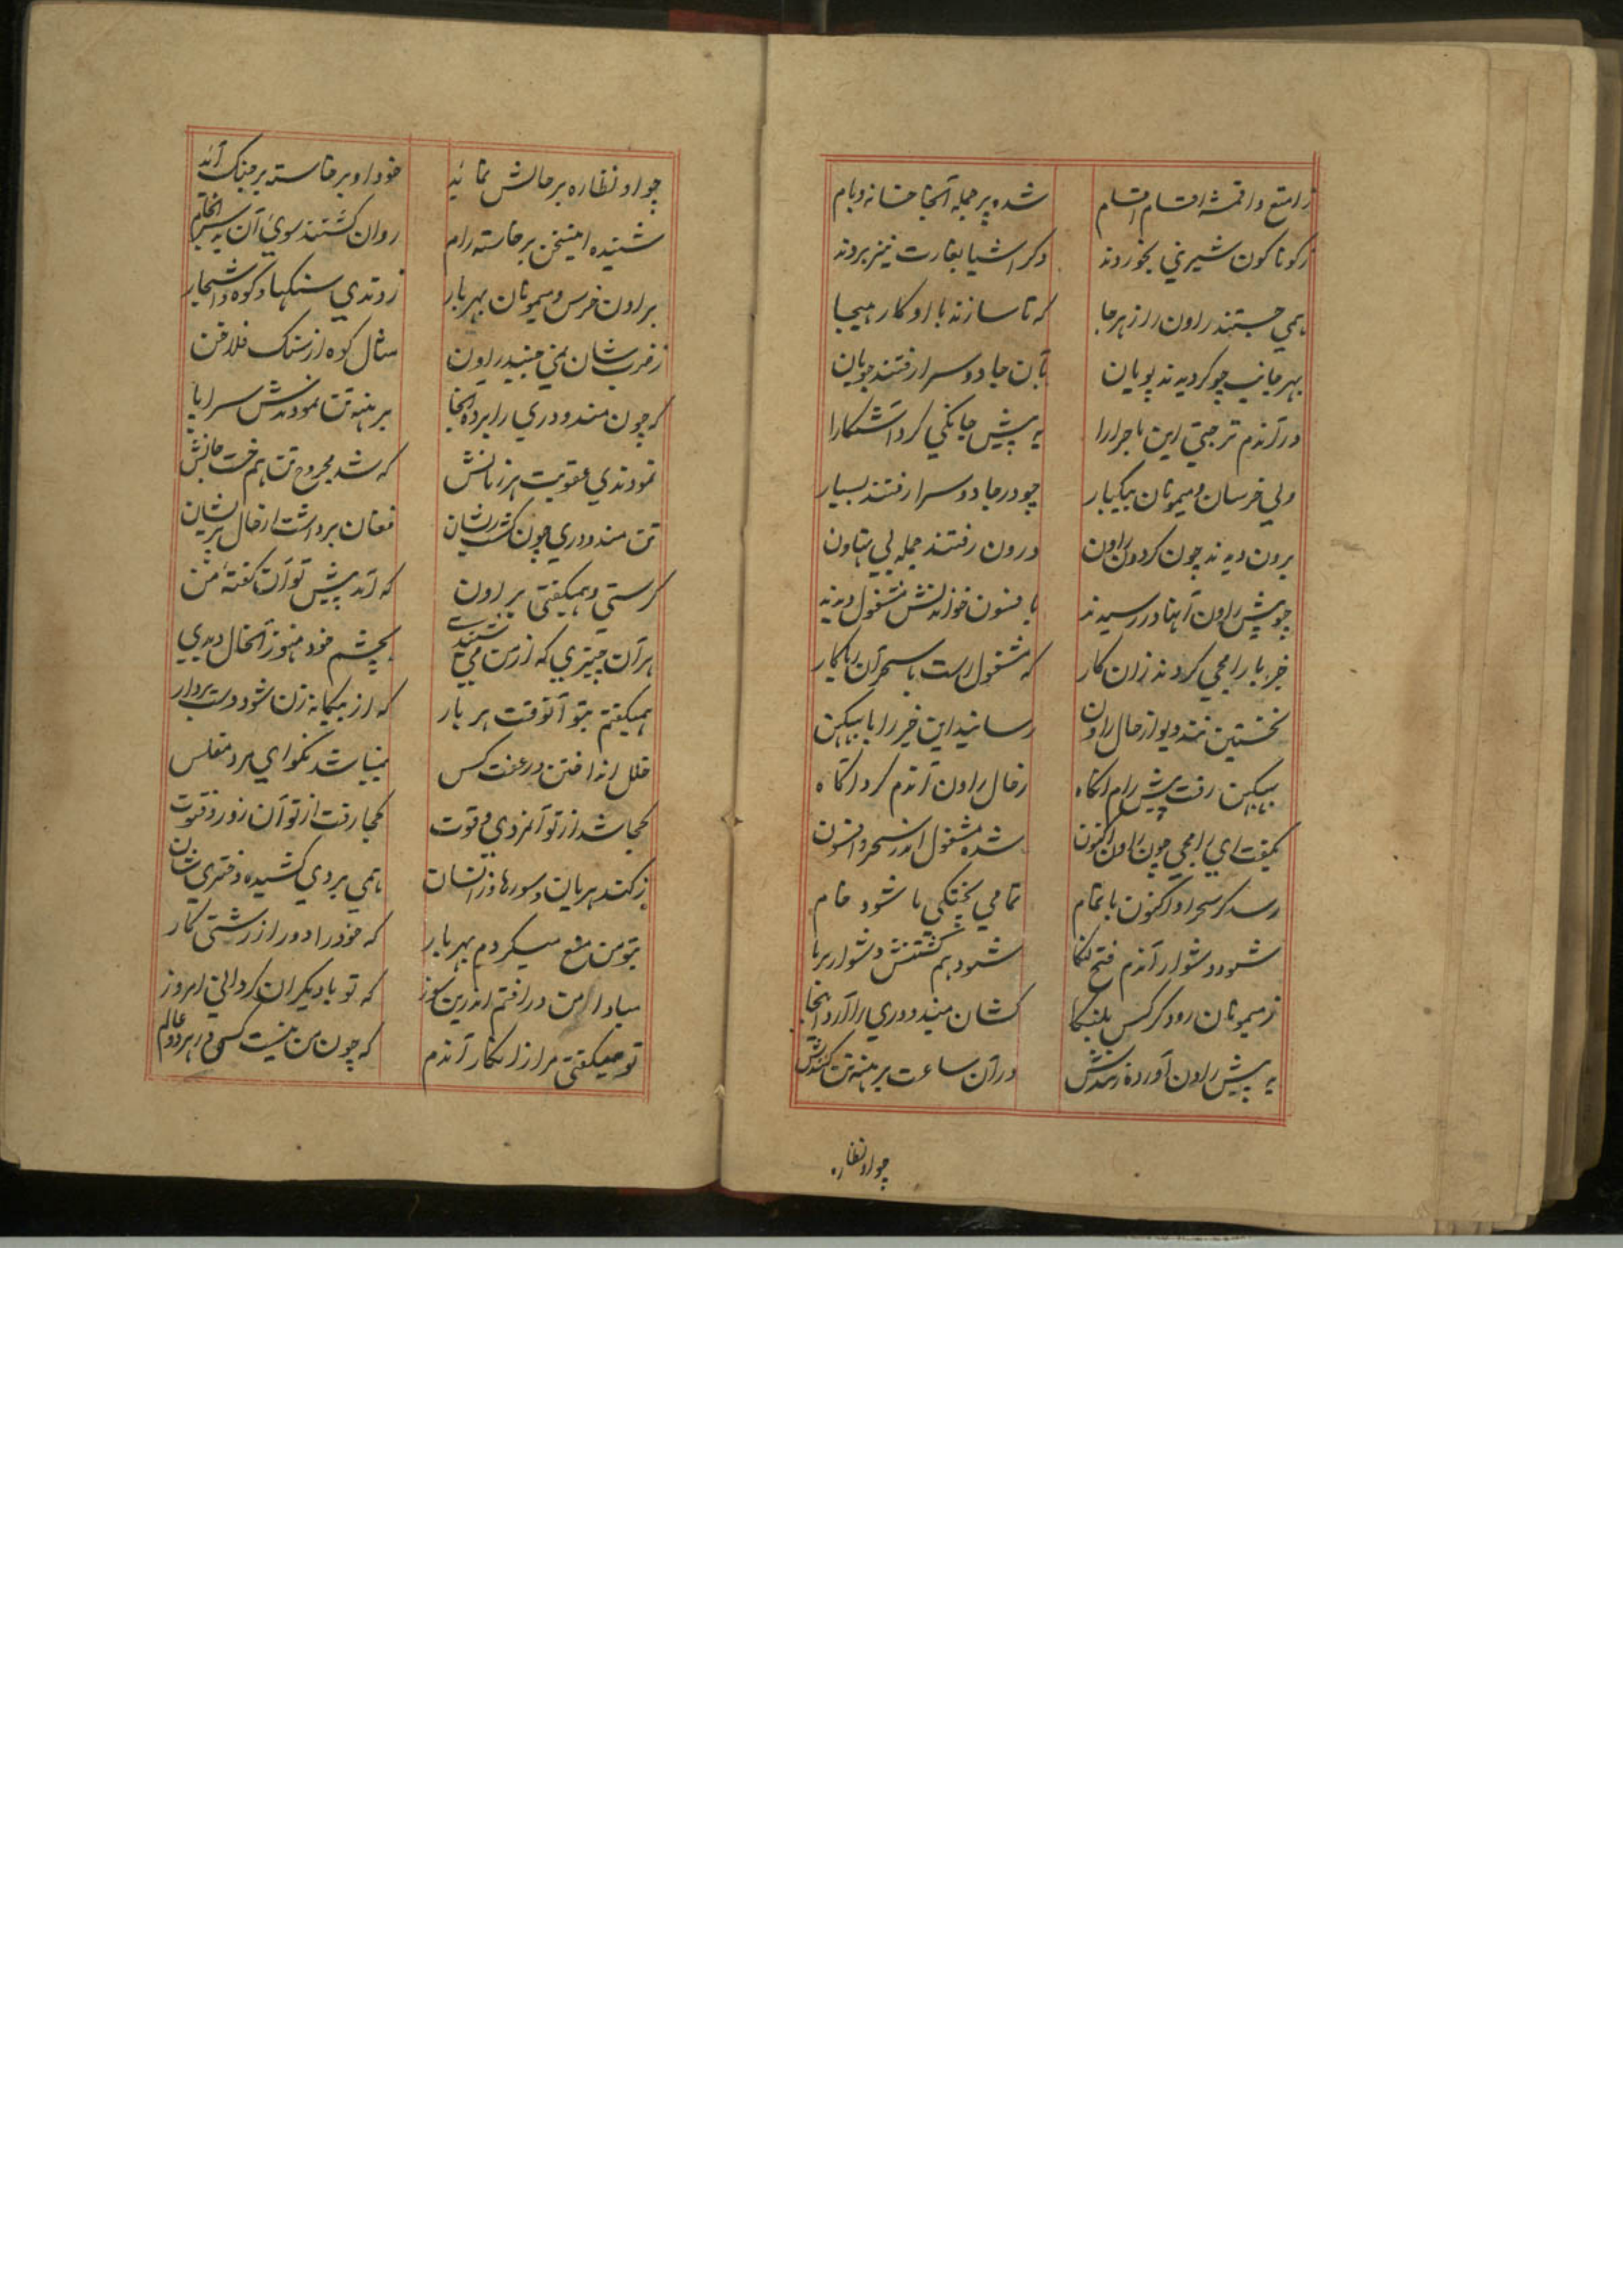 ز امتع و اقمشه اقسام اقسام شده پر جمله آنجا خانه و بام
ز کوناکون شیرینی بخوردند دکر اشیا بغارت نیز بردند
همی جستند راون را ز هر جا که تا سازند با او کار هیجا
بهر جانب چو کردیدند پویان بآن جادو سرا رفتند جویان
در آندم ترجتی این ماجرا را به پیش جانکی کرد آشکارا
ولی خرسان و میمونان بیکبار چو در جادو سرا رفتند بسیار
برون دیدند چون کردون راون درون رفتند جمله بی تهاون
چو پیش راون آنها در رسیدند بافسون خواندنش مشغول دیدند
خبر با رامجی کردند زان کار که مشغول است با سحر آن ریاکار
نخستین دیو از حال راون رسانید این خبر را با ببیکن
ببیکن رفت پیش رام آنکاه ز حال راون آندم کرد آکاه
بکفت ای رامجی چون راون اکنون شده مشغول اندر سحر و افسون
رسد کر سحر او اکنون باتمام تمامی پختکی ما شود خام
شود دشوار آندم فتح لنکا شود هم کشتنش دشوار بر ما
ز میمونان رود کر کس بلنکا کشان مندودری را آرد آنجا
به پیش راون آورده زنندش در آن ساعت برهنه تن کنندش
چو او نظاره
چو او نظاره بر حالش نماید خود او برخاسته بر جنک آید
شنیده اینسخن برخاسته رام روان کشتند سوی آن به انجام
بر اون خرس و میمونان بهر بار زدندی سنکها و کوه و اشجار
ز ضرب شان نمی جنبید راون مثال کوه از سنک فلاخن
که چون مندودری را برده آنجا برهنه تن نمودندش سراپا
نمودندی عقوبت هر زمانش که شد مجروح تن هم خست جانش
تن مندودری چون کشت ریشان فغان برداشت از حال پریشان
کرستی و همیکفتی براون که آمد پیش تو آن کفتهٔ من
هر آن چیزی که از من می شنیدی بچشم خود هنوز آنحال دیدی
همیکفتم بتو آنوقت هر بار که از بیکانه زن شو دست بردار
خلل انداختن در عفت کس نباشد نکو ای مرد مفلس
کجا شد از تو آنمردی و قوت کجا رفت از تو آن زور و فتوت
ز کند هربان و سورها و ز انسان همی بردی کشیده دختری شان
بتو من منع میکردم بهر بار که خود را دور از زشتی کار
مبادا من در افتم اندرین سوز که تو با دیکران کردانی امروز
تو همیکفتی مرا ز انکار آندم که چون من نیست کسی در هر دو عالم